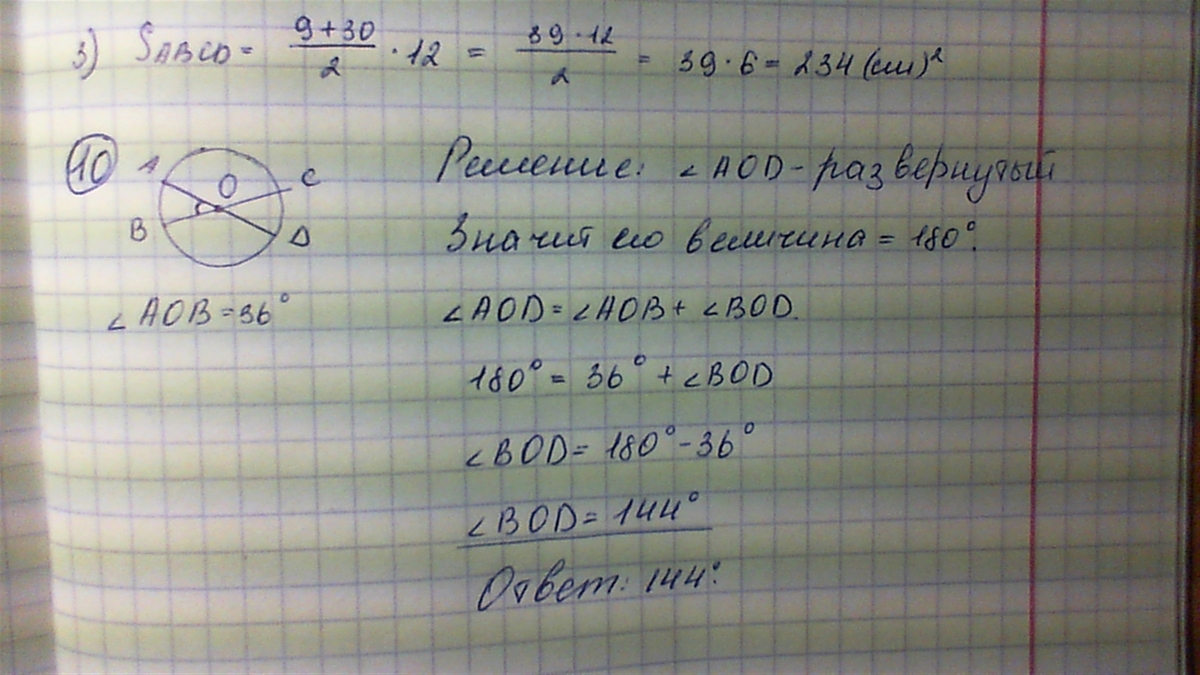 3) SABCD = 9+30/2 · 12 = 39·12/2 = 39·6 = 234 (см)²
10
A
O
C
B
D
Решение: ∠AOD - развернутый
Значит его величина = 180°.
∠AOB = 36°
∠AOD = ∠AOB + ∠BOD.
180° = 36° + ∠BOD
∠BOD = 180° - 36°
∠BOD = 144°
Ответ: 144°.